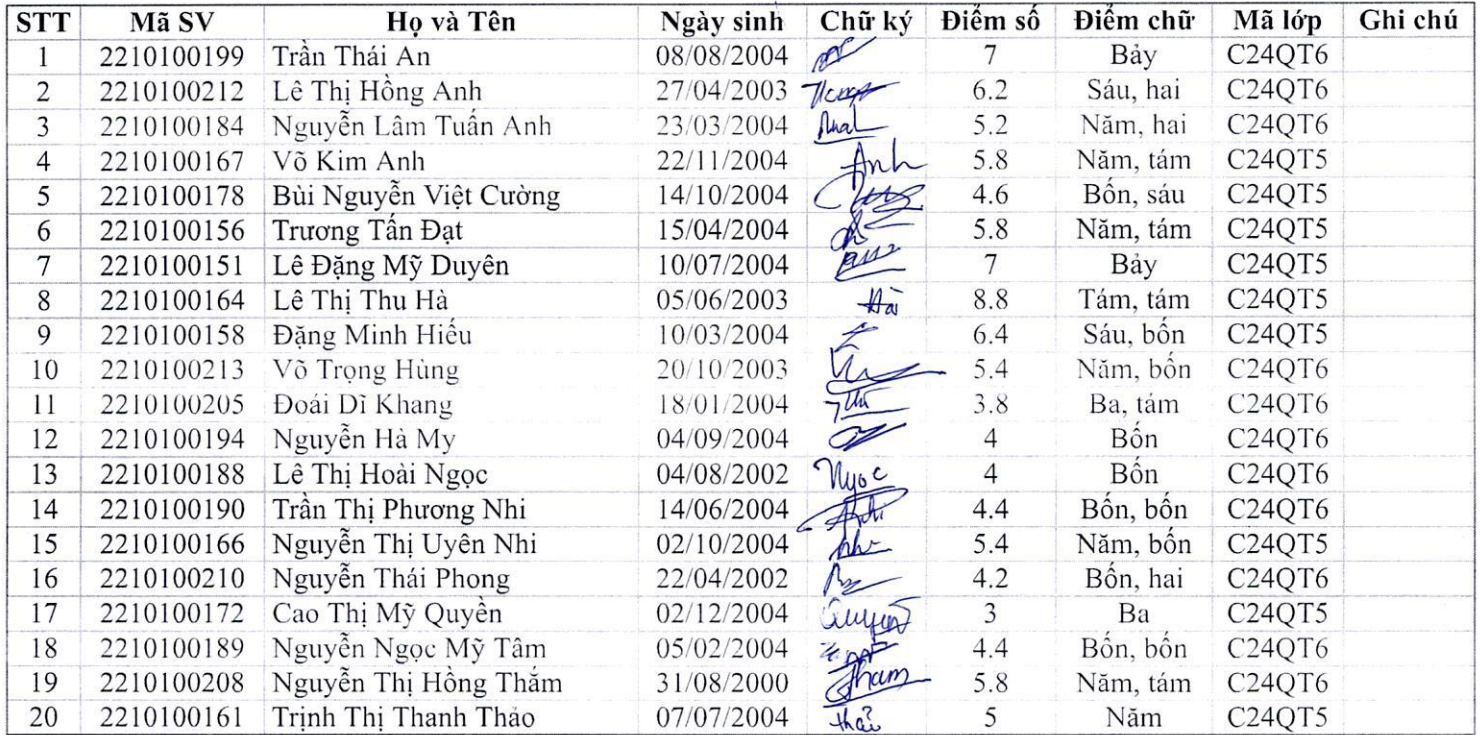 STT Mã SV Họ và Tên Ngày sinh Chữ ký Điểm số Điểm chữ Mã lớp Ghi chú
1 2210100199 Trần Thái An 08/08/2004 7 Bảy C24QT6
2 2210100212 Lê Thị Hồng Anh 27/04/2003 6.2 Sáu, hai C24QT6
3 2210100184 Nguyễn Lâm Tuấn Anh 23/03/2004 5.2 Năm, hai C24QT6
4 2210100167 Võ Kim Anh 22/11/2004 Anh 5.8 Năm, tám C24QT5
5 2210100178 Bùi Nguyễn Việt Cường 14/10/2004 4.6 Bốn, sáu C24QT5
6 2210100156 Trương Tấn Đạt 15/04/2004 5.8 Năm, tám C24QT5
7 2210100151 Lê Đặng Mỹ Duyên 10/07/2004 7 Bảy C24QT5
8 2210100164 Lê Thị Thu Hà 05/06/2003 8.8 Tám, tám C24QT5
9 2210100158 Đặng Minh Hiếu 10/03/2004 6.4 Sáu, bốn C24QT5
10 2210100213 Võ Trọng Hùng 20/10/2003 5.4 Năm, bốn C24QT6
11 2210100205 Đoái Dĩ Khang 18/01/2004 3.8 Ba, tám C24QT6
12 2210100194 Nguyễn Hà My 04/09/2004 4 Bốn C24QT6
13 2210100188 Lê Thị Hoài Ngọc 04/08/2002 Ngọc 4 Bốn C24QT6
14 2210100190 Trần Thị Phương Nhi 14/06/2004 4.4 Bốn, bốn C24QT6
15 2210100166 Nguyễn Thị Uyên Nhi 02/10/2004 5.4 Năm, bốn C24QT5
16 2210100210 Nguyễn Thái Phong 22/04/2002 4.2 Bốn, hai C24QT6
17 2210100172 Cao Thị Mỹ Quyền 02/12/2004 3 Ba C24QT5
18 2210100189 Nguyễn Ngọc Mỹ Tâm 05/02/2004 4.4 Bốn, bốn C24QT6
19 2210100208 Nguyễn Thị Hồng Thắm 31/08/2000 Tham 5.8 Năm, tám C24QT6
20 2210100161 Trịnh Thị Thanh Thảo 07/07/2004 5 Năm C24QT5